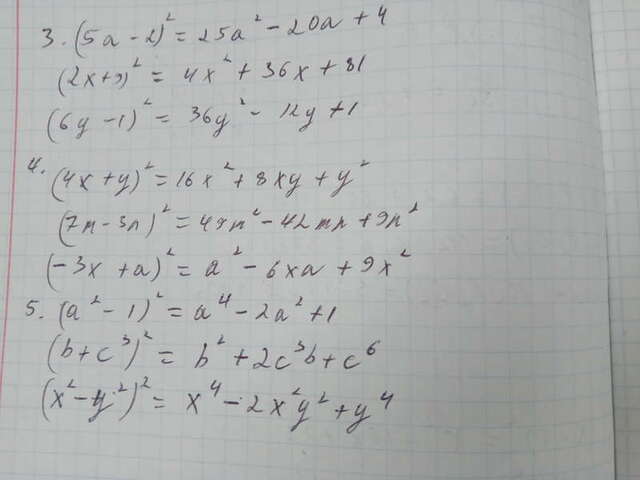 3. (5a - 2)² = 25a² - 20a + 4
(2x+9)² = 4x² + 36x + 81
(6y - 1)² = 36y² - 12y + 1
4. (4x + y)² = 16x² + 8xy + y²
(7m - 3n)² = 49m² - 42mn + 9n²
(-3x + a)² = a² - 6xa + 9x²
5. (a² - 1)² = a⁴ - 2a² + 1
(b + c³)² = b² + 2c³b + c⁶
(x² - y²)² = x⁴ - 2x²y² + y⁴